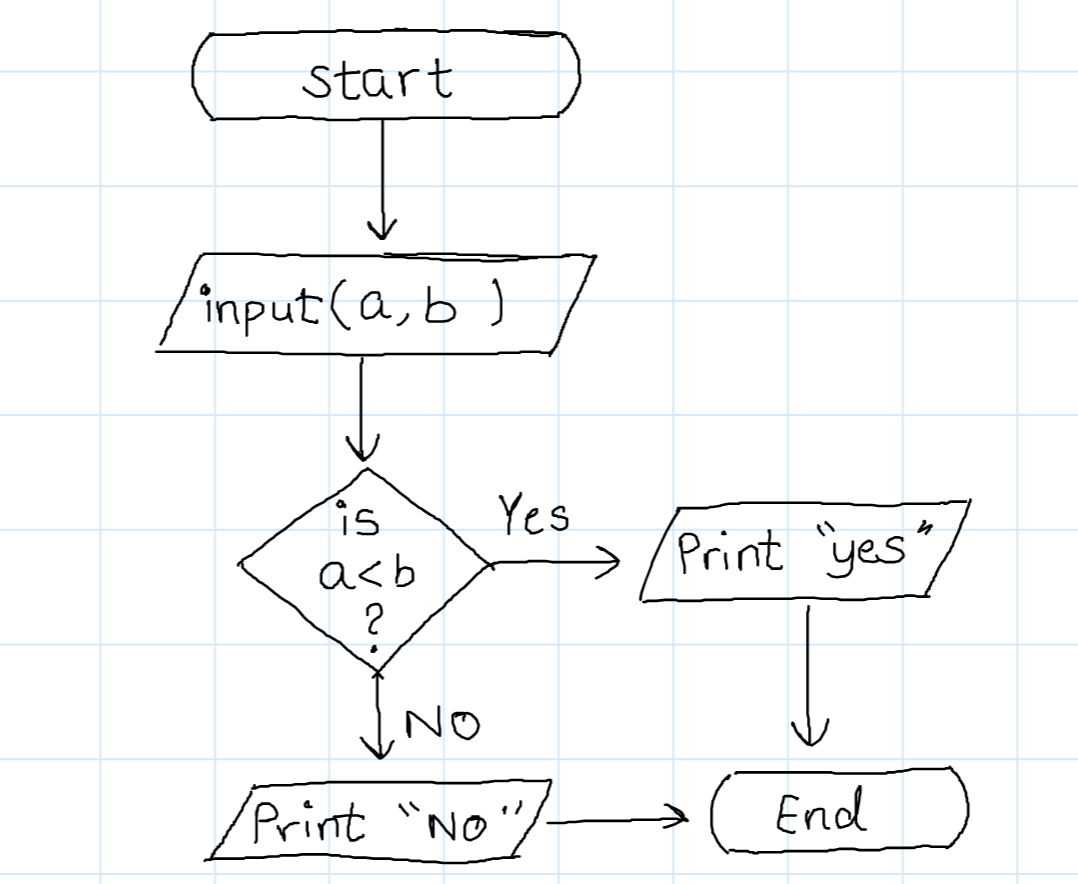 start
input(a, b )
is
a<b
?
Yes
Print "yes"
NO
Print "NO"
End